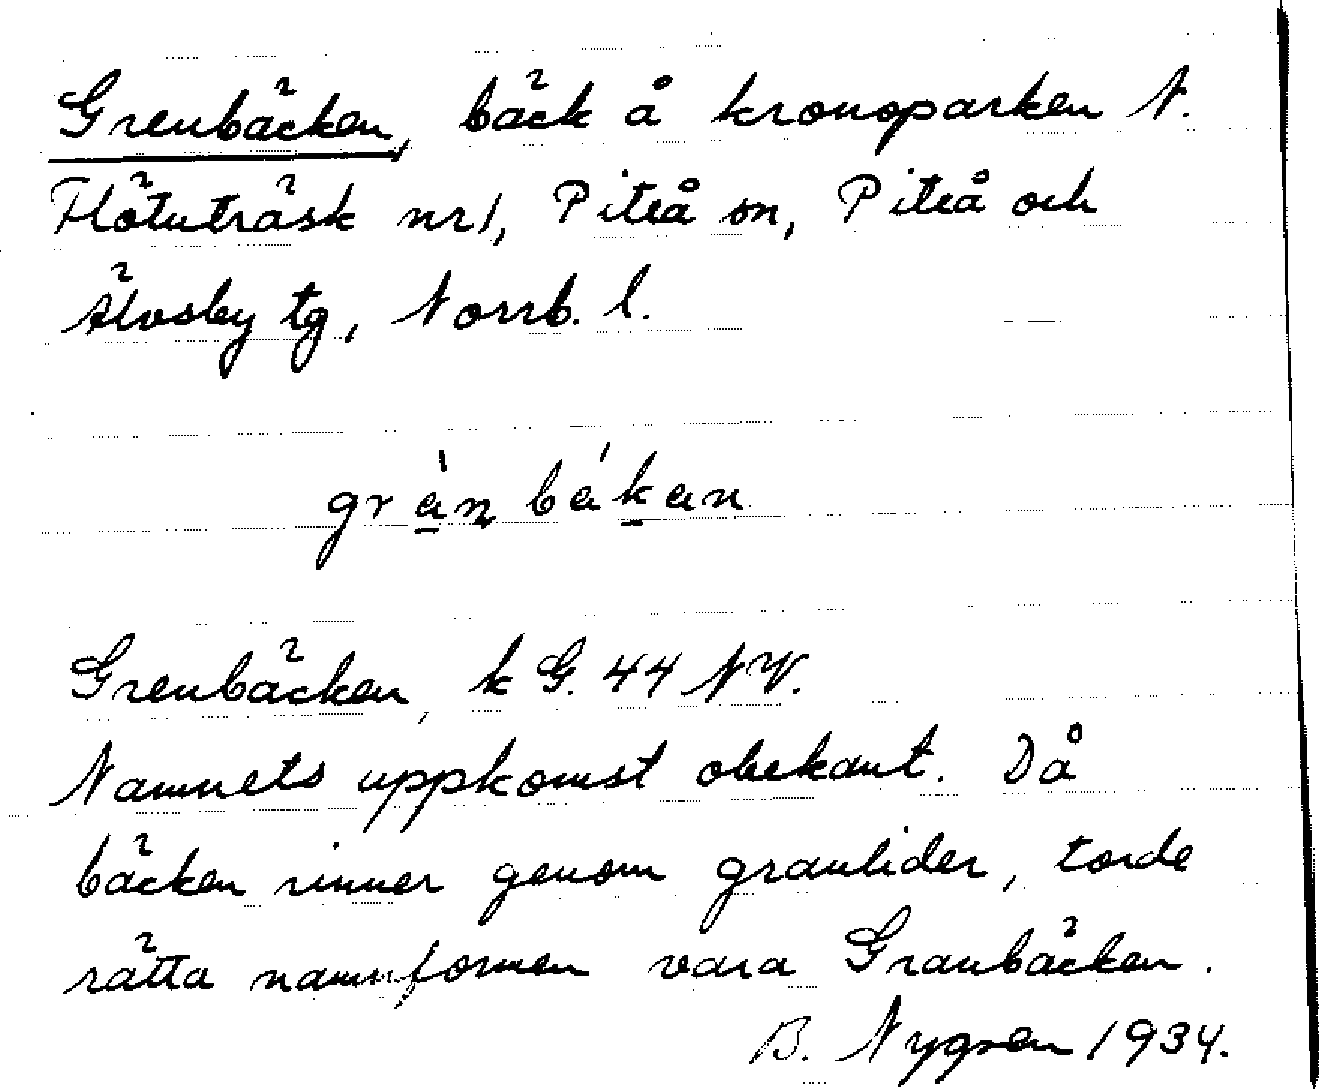 Grenbäcken, bäck å kronoparken N.
Flötuträsk nr 1, Piteå sn, Piteå och
Älvsby tg, Norrb. l.
gränbäkan
Grenbäcken, k G. 44 NV.
Namnets uppkomst obekant. Då
bäcken rinner genom granlider, torde
rätta namnformen vara Granbäcken.
B. Nygren 1934.